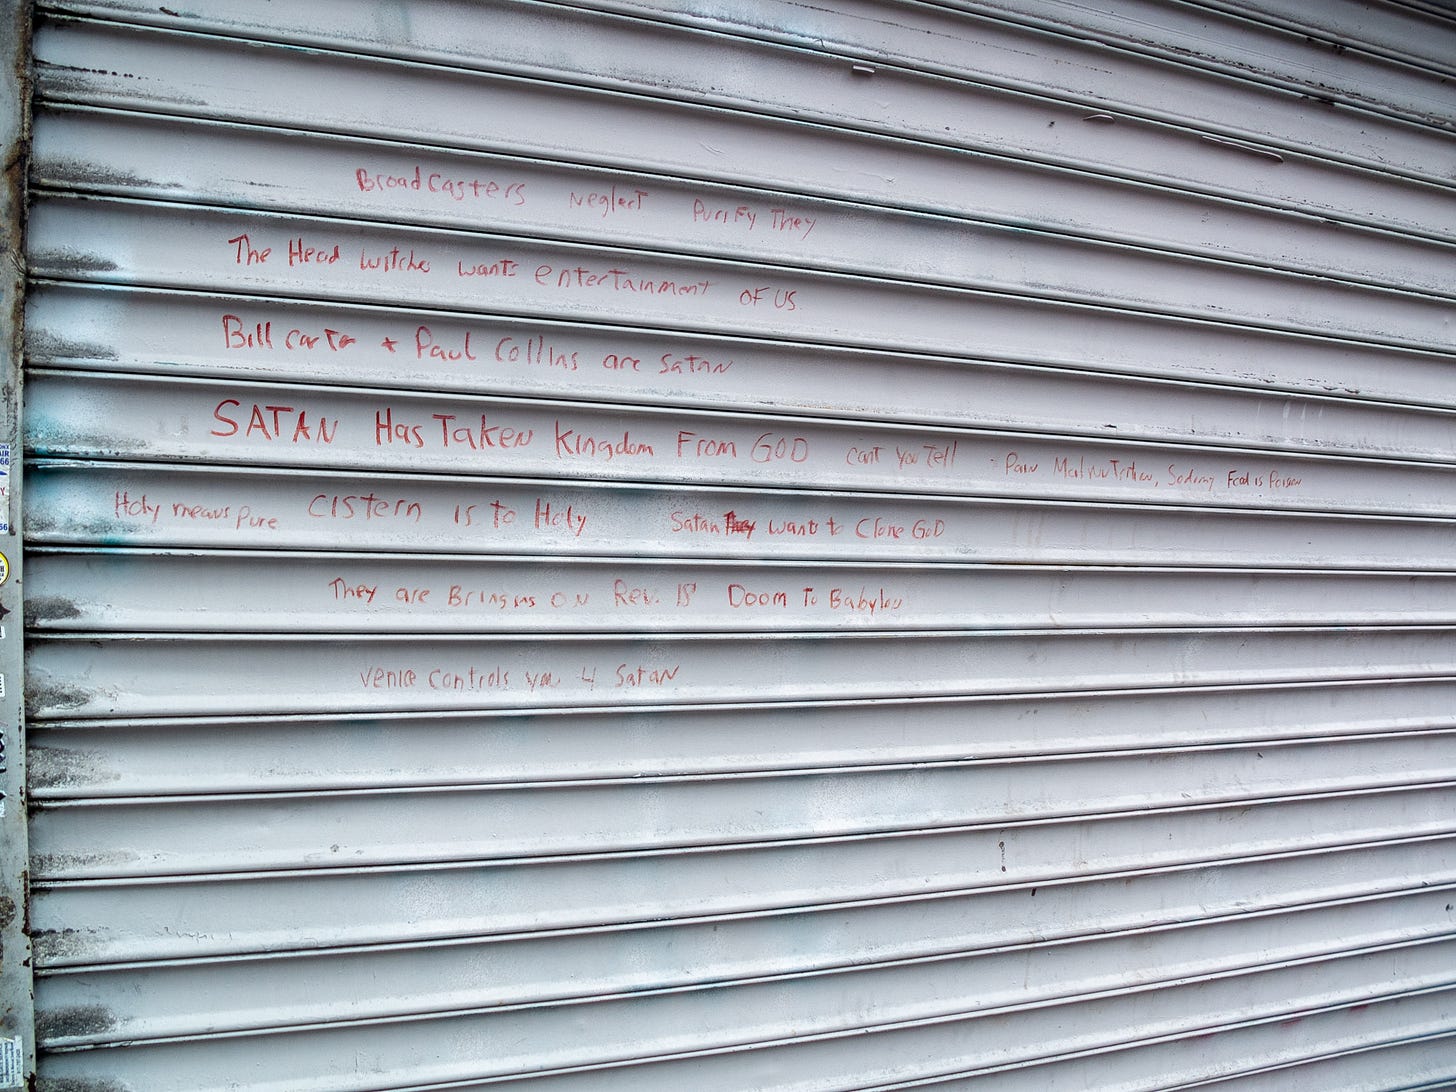 Broadcasters Neglect Purify They
The Head witches wants entertainment OF US.
Bill Carter + Paul Collins are Satan
SATAN Has Taken Kingdom From GOD can't you Tell - Pain Malnutrition, Sodomy Food is Poison
Holy means pure CISTern is to Holy Satan They wants to Clone GoD
They are Bringing ON Rev. 18 Doom To Babylon
Venice Controls you 4 Satan